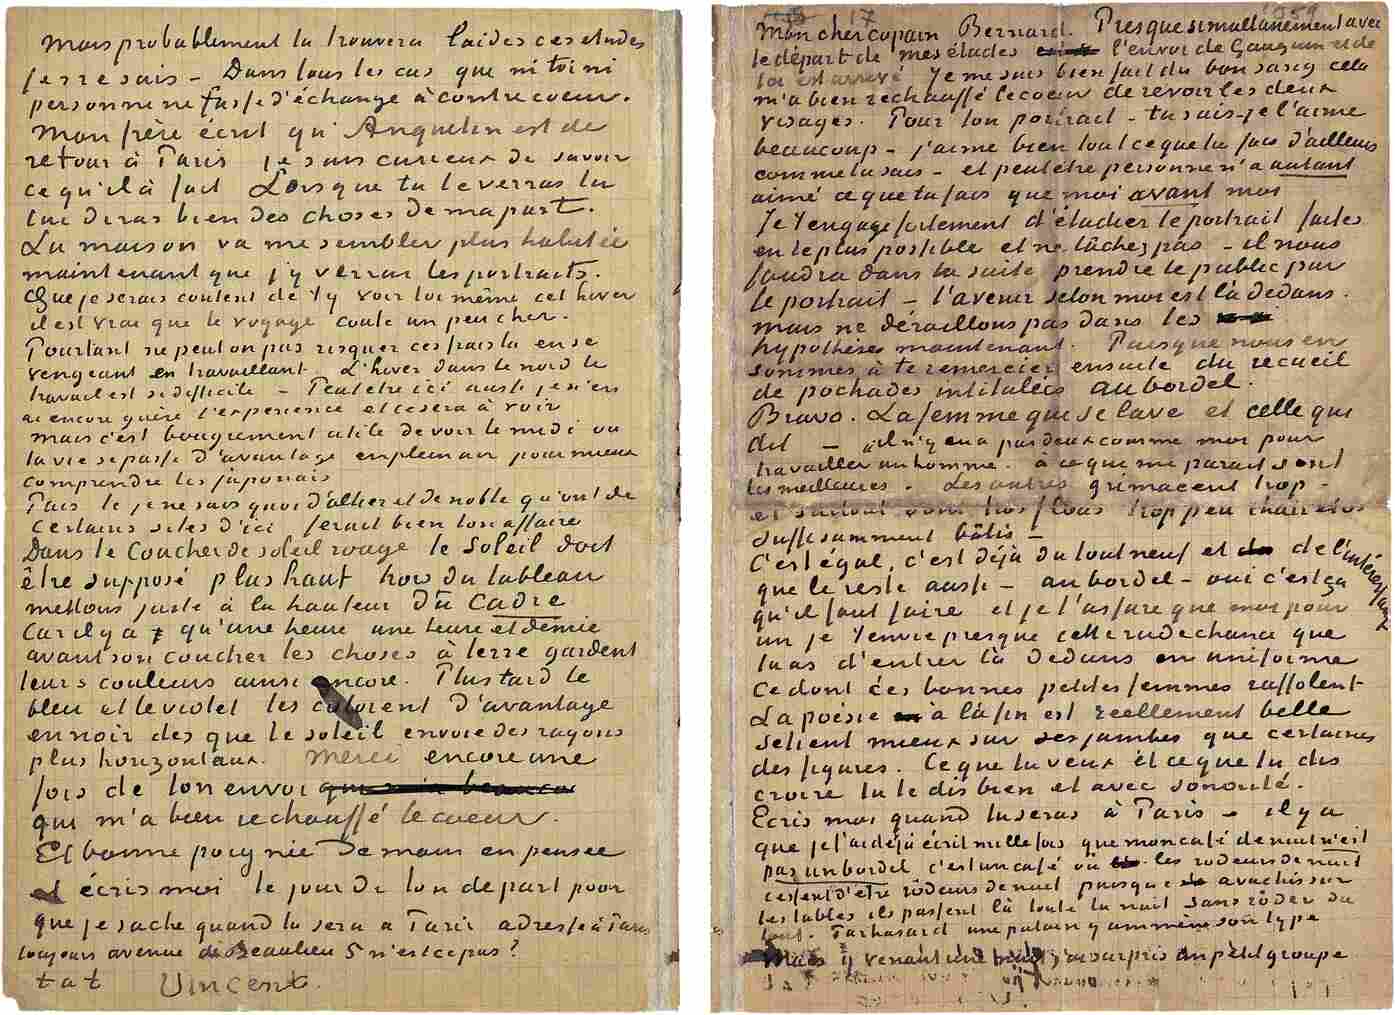 Mais probablement tu trouvera laides ces etudes
je ne sais – Dans tous les cas que ni toi ni
personne ne fasse d'échange à contre coeur.
Mon frère écrit qu'Anquetin est de
retour à Paris je suis curieux de savoir
ce qu'il à fait Lorsque tu le verras tu
lui diras bien des choses de ma part.
La maison va me sembler plus habitée
maintenant que j'y verrai les portraits.
Que je serais content de t'y voir toi même cet hiver
il est vrai que le voyage coute un peu cher.
Pourtant ne peut on pas risquer ces frais là en se
vengeant en travaillant. L'hiver dans le nord le
travail est si difficile – Peut être ici aussi je n'en
ai encore guère l'expérience et ce sera à voir
mais c'est bougrement utile de voir le midi où
la vie se passe d'avantage en plein air pour mieux
comprendre les japonais
Puis le je ne sais quoi d'altier et de noble qu'ont de
certains sites d'ici ferait bien ton affaire
Dans le Coucher de soleil rouge le soleil doit
être supposé plus haut hors du tableau
mettons juste à la hauteur du cadre
Car il y a qu'une heure une heure et demie
avant son coucher les choses à terre gardent
leurs couleurs ainsi encore. Plus tard le
bleu et le violet les colorent d'avantage
en noir des que le soleil envoie des rayons
plus horizontaux. Merci encore une
fois de ton envoi
qui m'a bien rechauffé le coeur.
Et bonne poignée de main en pensee
écris moi le jour de ton depart pour
que je sache quand tu sera a Paris adresse à Paris
toujours avenue de Beaulieu 5 n'est ce pas?
t a t Vincent.
17
Mon cher copain Bernard. Presque simultanément avec
le départ de mes études l'envoi de Gauguin et de
toi est arrivé Je me suis bien fait du bon sang cela
m'a bien rechauffé le coeur de revoir les deux
visages. Pour ton portrait – tu sais – je l'aime
beaucoup – j'aime bien tout ce que tu fais d'ailleurs
comme tu sais – et peut être personne n'a autant
aimé ce que tu fais que moi avant moi
Je t'engage fortement d'étudier le portrait faites
en le plus possible et ne lâchez pas – il nous
faudra dans la suite prendre le public par
le portrait – l'avenir selon moi est là dedans.
mais ne déraillons pas dans les
hypothèses maintenant. Puisque nous en
sommes à te remercier ensuite du recueil
de pochades intitulées au bordel.
Bravo. La femme qui se lave et celle qui
dit – il n'y en a pas deux comme moi pour
travailler un homme. à ce que me parait sont
les meilleures. Les autres grimacent trop –
et surtout sont trop flous trop peu chair et os
suffisamment bâtis –
C'est égal, c'est déjà du tout neuf et de l'intéressant
que le reste aussi – au bordel – oui c'est ça
qu'il faut faire et je t'assure que moi pour
un je t'envie presque cette rude chance que
tu as d'entrer là dedans en uniforme
Ce dont ces bonnes petites femmes raffolent
La poésie à la fin est réellement belle
se tient mieux sur ses jambes que certaines
des figures. Ce que tu veux et ce que tu dis
croire tu le dis bien et avec sonorité.
Ecris moi quand tu seras à Paris – il y a
que je t'ai déjà écrit mille fois que mon café de nuit n'est
pas un bordel c'est un café où les rôdeurs de nuit
cessent d'être rôdeurs de nuit puisque avachis sur
les tables ils passent là toute la nuit sans rôder du
tout. Par hasard une putain y amène son type
Mais y venant une nuit j'ai surpris un petit groupe